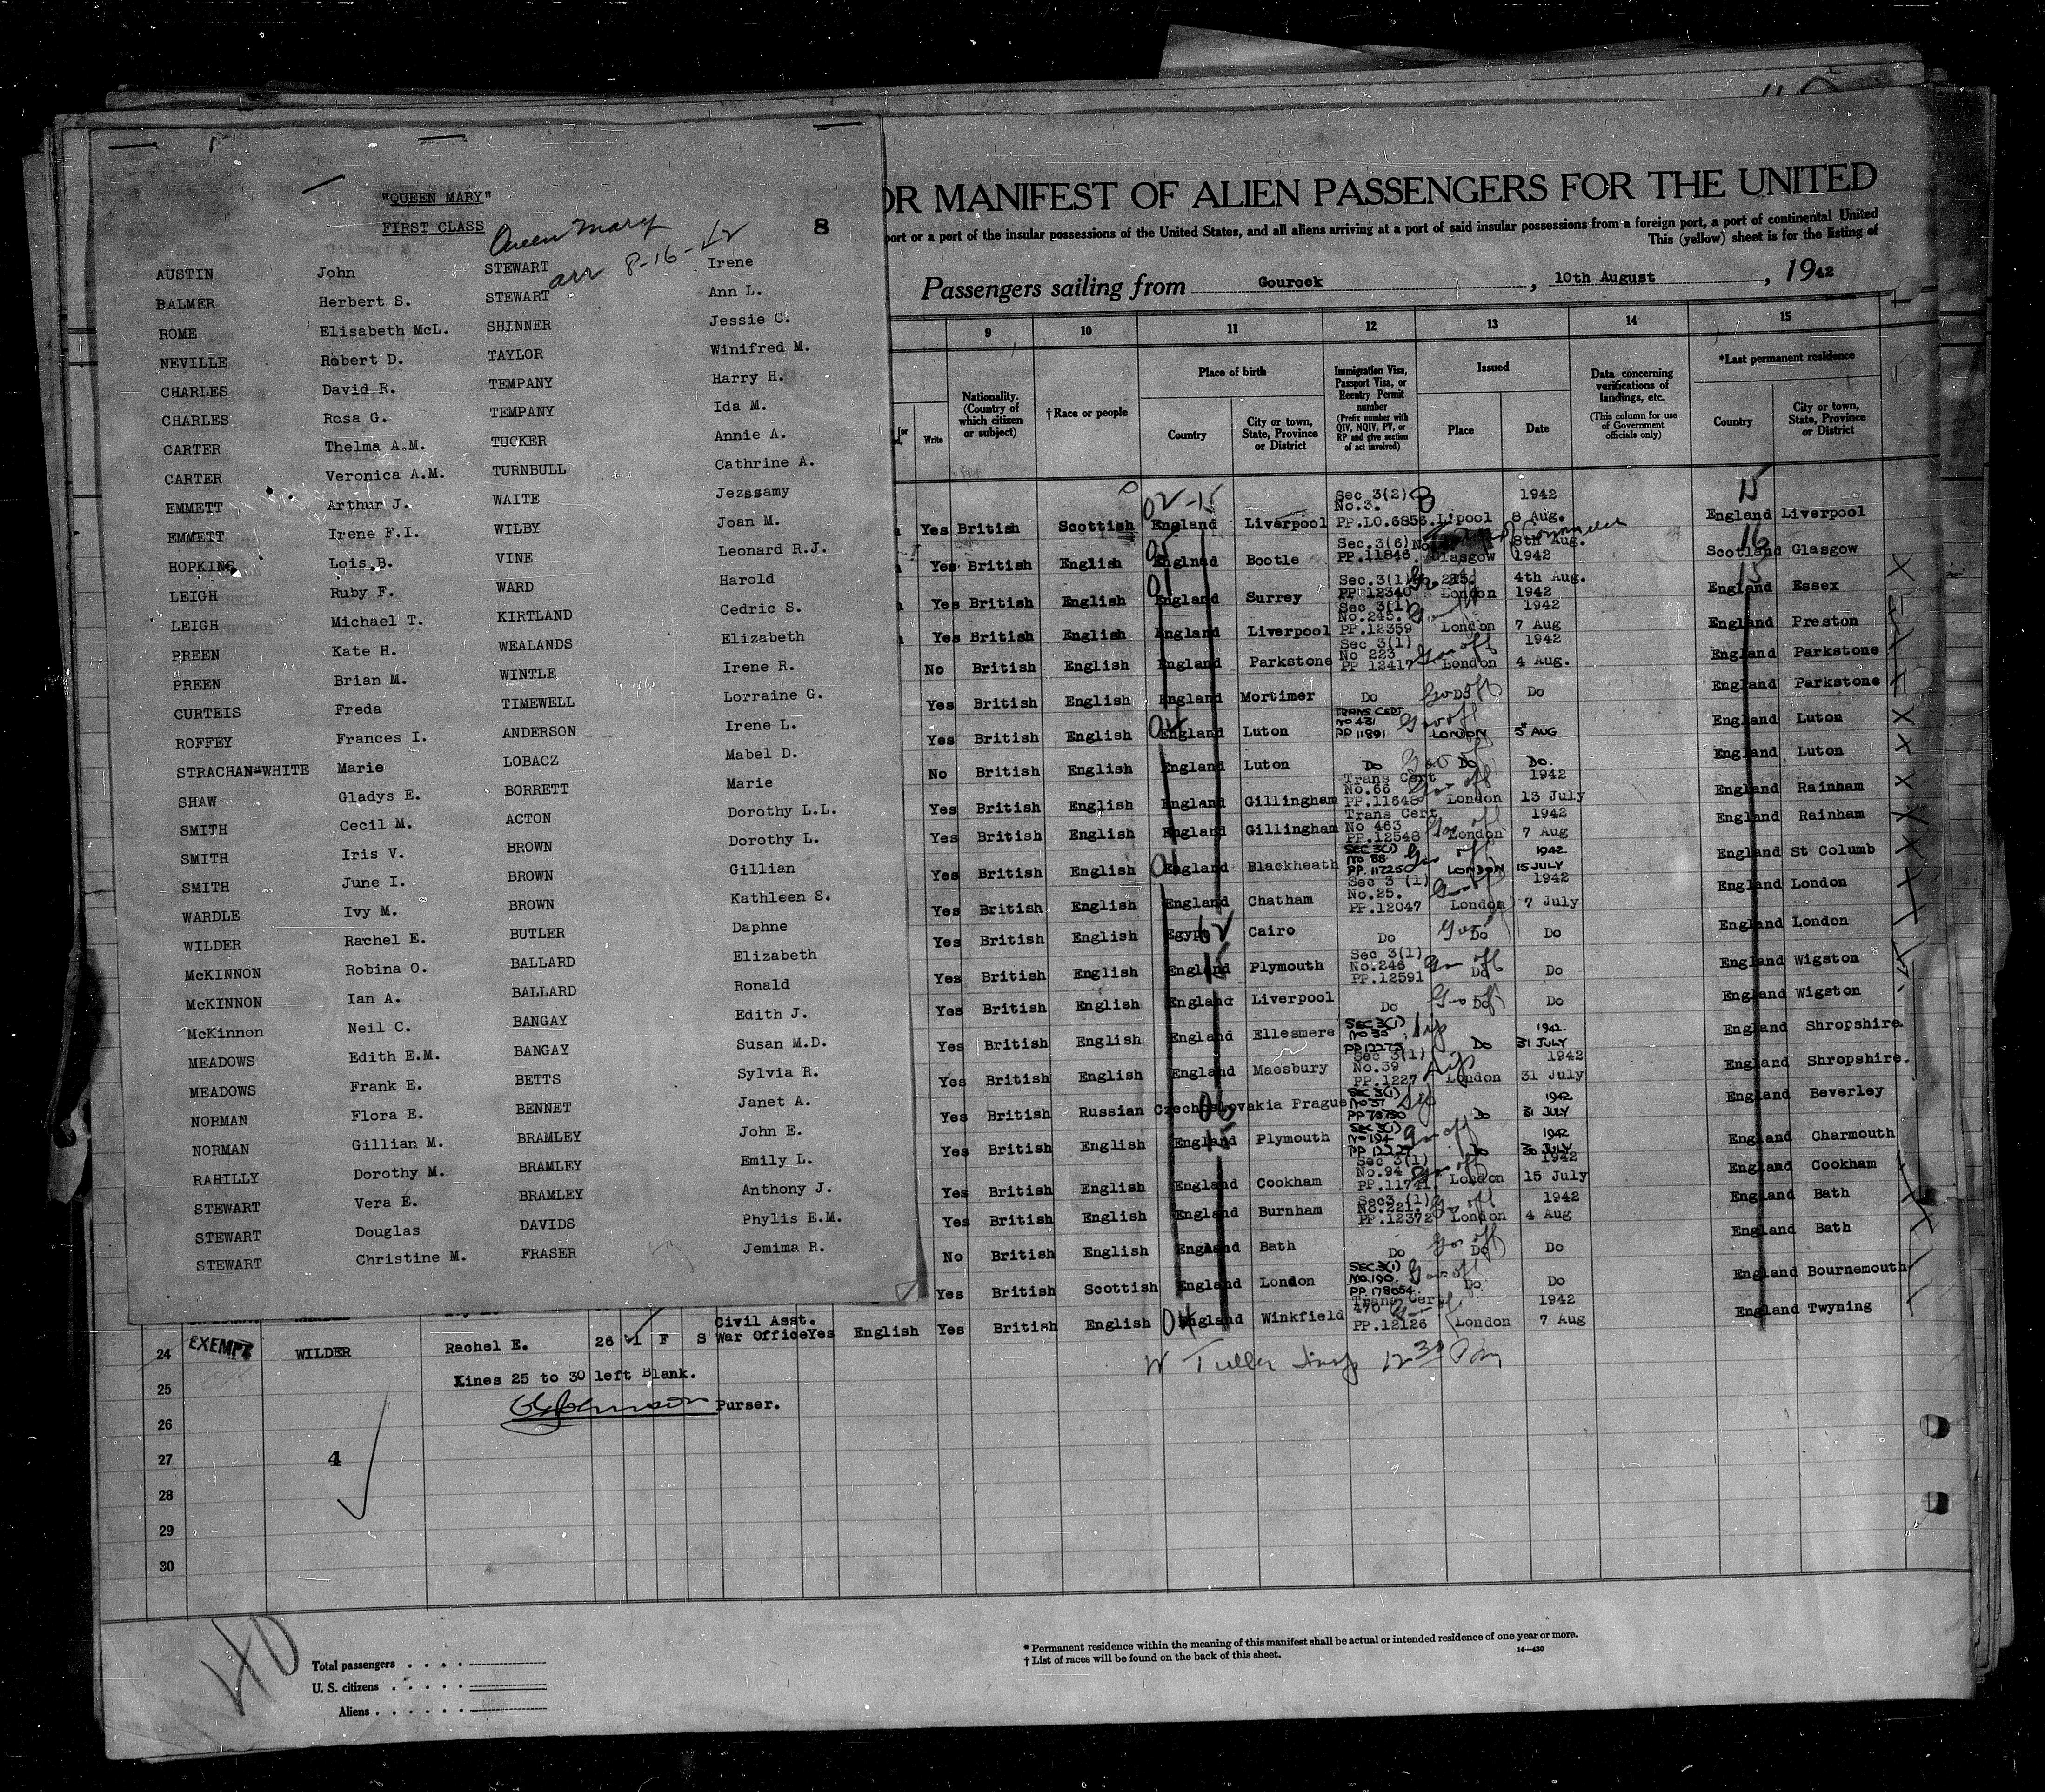 "QUEEN MARY"
FIRST CLASS
Queen Mary
arr 8-16-42
8
AUSTIN John STEWART Irene
BALMER Herbert S. STEWART Ann L.
ROME Elisabeth McL. SHINNER Jessie C.
NEVILLE Robert D. TAYLOR Winifred M.
CHARLES David R. TEMPANY Harry H.
CHARLES Rosa G. TEMPANY Ida M.
CARTER Thelma A.M. TUCKER Annie A.
CARTER Veronica A.M. TURNBULL Cathrine A.
EMMETT Arthur J. WAITE Jezssamy
EMMETT Irene F.I. WILBY Joan M.
HOPKINS Lois B. VINE Leonard R.J.
LEIGH Ruby F. WARD Harold
LEIGH Michael T. KIRTLAND Cedric S.
PREEN Kate H. WEALANDS Elizabeth
PREEN Brian M. WINTLE Irene R.
CURTEIS Freda TIMEWELL Lorraine G.
ROFFEY Frances I. ANDERSON Irene L.
STRACHAN-WHITE Marie LOBACZ Mabel D.
SHAW Gladys E. BORRETT Marie
SMITH Cecil M. ACTON Dorothy L.L.
SMITH Iris V. BROWN Dorothy L.
SMITH June I. BROWN Gillian
WARDLE Ivy M. BROWN Kathleen S.
WILDER Rachel E. BUTLER Daphne
McKINNON Robina O. BALLARD Elizabeth
McKINNON Ian A. BALLARD Ronald
McKinnon Neil C. BANGAY Edith J.
MEADOWS Edith E.M. BANGAY Susan M.D.
MEADOWS Frank E. BETTS Sylvia R.
NORMAN Flora E. BENNET Janet A.
NORMAN Gillian M. BRAMLEY John E.
RAHILLY Dorothy M. BRAMLEY Emily L.
STEWART Vera E. BRAMLEY Anthony J.
STEWART Douglas DAVIDS Phylis E.M.
STEWART Christine M. FRASER Jemima R.
OR MANIFEST OF ALIEN PASSENGERS FOR THE UNITED
port or a port of the insular possessions of the United States, and all aliens arriving at a port of said insular possessions from a foreign port, a port of continental United
This (yellow) sheet is for the listing of
Passengers sailing from Gourock, 10th August, 1942
9 10 11 12 13 14 15
Write
Nationality. (Country of which citizen or subject)
†Race or people
Place of birth
Country
City or town, State, Province or District
Immigration Visa, Passport Visa, or Reentry Permit number
(Prefix number with QIV, NQIV, PV, or RP and give section of act involved)
Issued
Place
Date
Data concerning verifications of landings, etc.
(This column for use of Government officials only)
*Last permanent residence
Country
City or town, State, Province or District
02-15
15
Yes British Scottish England Liverpool Sec 3(2) No.3. PP.LO.6856. Lipool 8 Aug. 1942 England Liverpool
16
Yes British English Englnad Bootle Sec.3(6) No PP.11846 Glasgow 8th Aug. 1942 Scotland Glasgow
15
Yes British English England Surrey Sec.3(1) PP 12340 London 4th Aug. 1942 England Essex
Yes British English England Liverpool Sec 3(1) No.245. PP.12359 London 7 Aug 1942 England Preston
No British English England Parkstone Sec 3(1) No 223 PP 12417 London 4 Aug. 1942 England Parkstone
Yes British English England Mortimer Do Do Do England Parkstone
Yes British English England Luton TRANS CERT No 431 PP 11891 LONDON 5 AUG England Luton
No British English England Luton Do Do Do. England Luton
Yes British English England Gillingham Trans Cert No.66 PP.11648 London 13 July 1942 England Rainham
Yes British English England Gillingham Trans Cert No 463 PP.12548 London 7 Aug 1942 England Rainham
Yes British English England Blackheath SEC 3(1) No 88 PP. 117250 LONDON 15 JULY 1942. England St Columb
Yes British English England Chatham Sec 3 (1) No.25. PP.12047 London 7 July 1942 England London
Yes British English Egypt Cairo Do Do Do England London
Yes British English England Plymouth Sec 3(1) No.246 PP.12591 Do Do England Wigston
Yes British English England Liverpool Do Do Do England Wigston
Yes British English England Ellesmere SEC 3(1) No 35 PP 12273 Do 31 JULY 1942. England Shropshire.
Yes British English England Maesbury Sec 3(1) No.39 PP.1227 London 31 July 1942 England Shropshire.
Yes British Russian Czechoslovakia Prague SEC 3(1) No 37 Do 31 JULY 1942 England Beverley
Yes British English England Plymouth SEC 3(1) No 194 Do 30 JULY 1942 England Charmouth
Yes British English England Cookham Sec 3(1) No.94 PP.11741. London 15 July 1942 England Cookham
Yes British English England Burnham Sec3 (1) No.221. PP.12372 London 4 Aug 1942 England Bath
No British English England Bath Do Do Do England Bath
Yes British Scottish England London SEC 3(1) No.190. PP 178054. Do Do England Bournemouth
24 EXEMPT WILDER Rachel E. 26 1 F S Civil Asst. War Office Yes English Yes British English England Winkfield Trans Cert 470 PP.12126 London 7 Aug 1942 England Twyning
25 Kines 25 to 30 left Blank.
Purser.
26
27 4
28
29
30
40
Total passengers
U. S. citizens
Aliens
* Permanent residence within the meaning of this manifest shall be actual or intended residence of one year or more.
† List of races will be found on the back of this sheet.
14—430